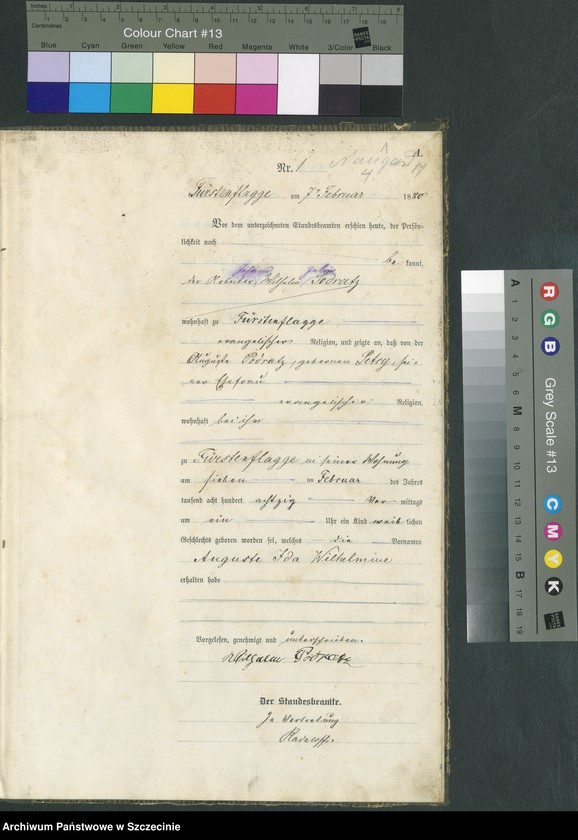 Inches 1 2 3 4 5 6 7 8
Centimetres 1 2 3 4 5 6 7 8 9 10 11 12 13 14 15 16 17 18 19
Colour Chart #13
Blue Cyan Green Yellow Red Magenta White 3/Color Black
DANES PICTA
A.
Naugard
Nr. 1
Fürstenflagge am 7. Februar 1880
Vor dem unterzeichneten Standesbeamten erschien heute, der Persön-
lichkeit nach
be kannt,
der Wilhelm Podratz
wohnhaft zu Fürstenflagge
evangelischer Religion, und zeigte an, daß von der
Auguste Podratz, geborenen Petry, sei-
ner Ehefrau
evangelischer Religion,
wohnhaft bei ihm
zu Fürstenflagge in seiner Wohnung
am sieben ten Februar des Jahres
tausend acht hundert achtzig Vor mittags
um ein Uhr ein Kind weib lichen
Geschlechts geboren worden sei, welches die Vornamen
Auguste Ida Wilhelmine
erhalten habe
Vorgelesen, genehmigt und unterschrieben.
Wilhelm Podratz
Der Standesbeamte.
In Vertretung
Radeloff.
A 1 2 3 4 5 6 M 8 9 10 11 12 13 14 15 B 17 18 19
R G B
Grey Scale #13
C M Y K
DANES PICTA
Archiwum Państwowe w Szczecinie